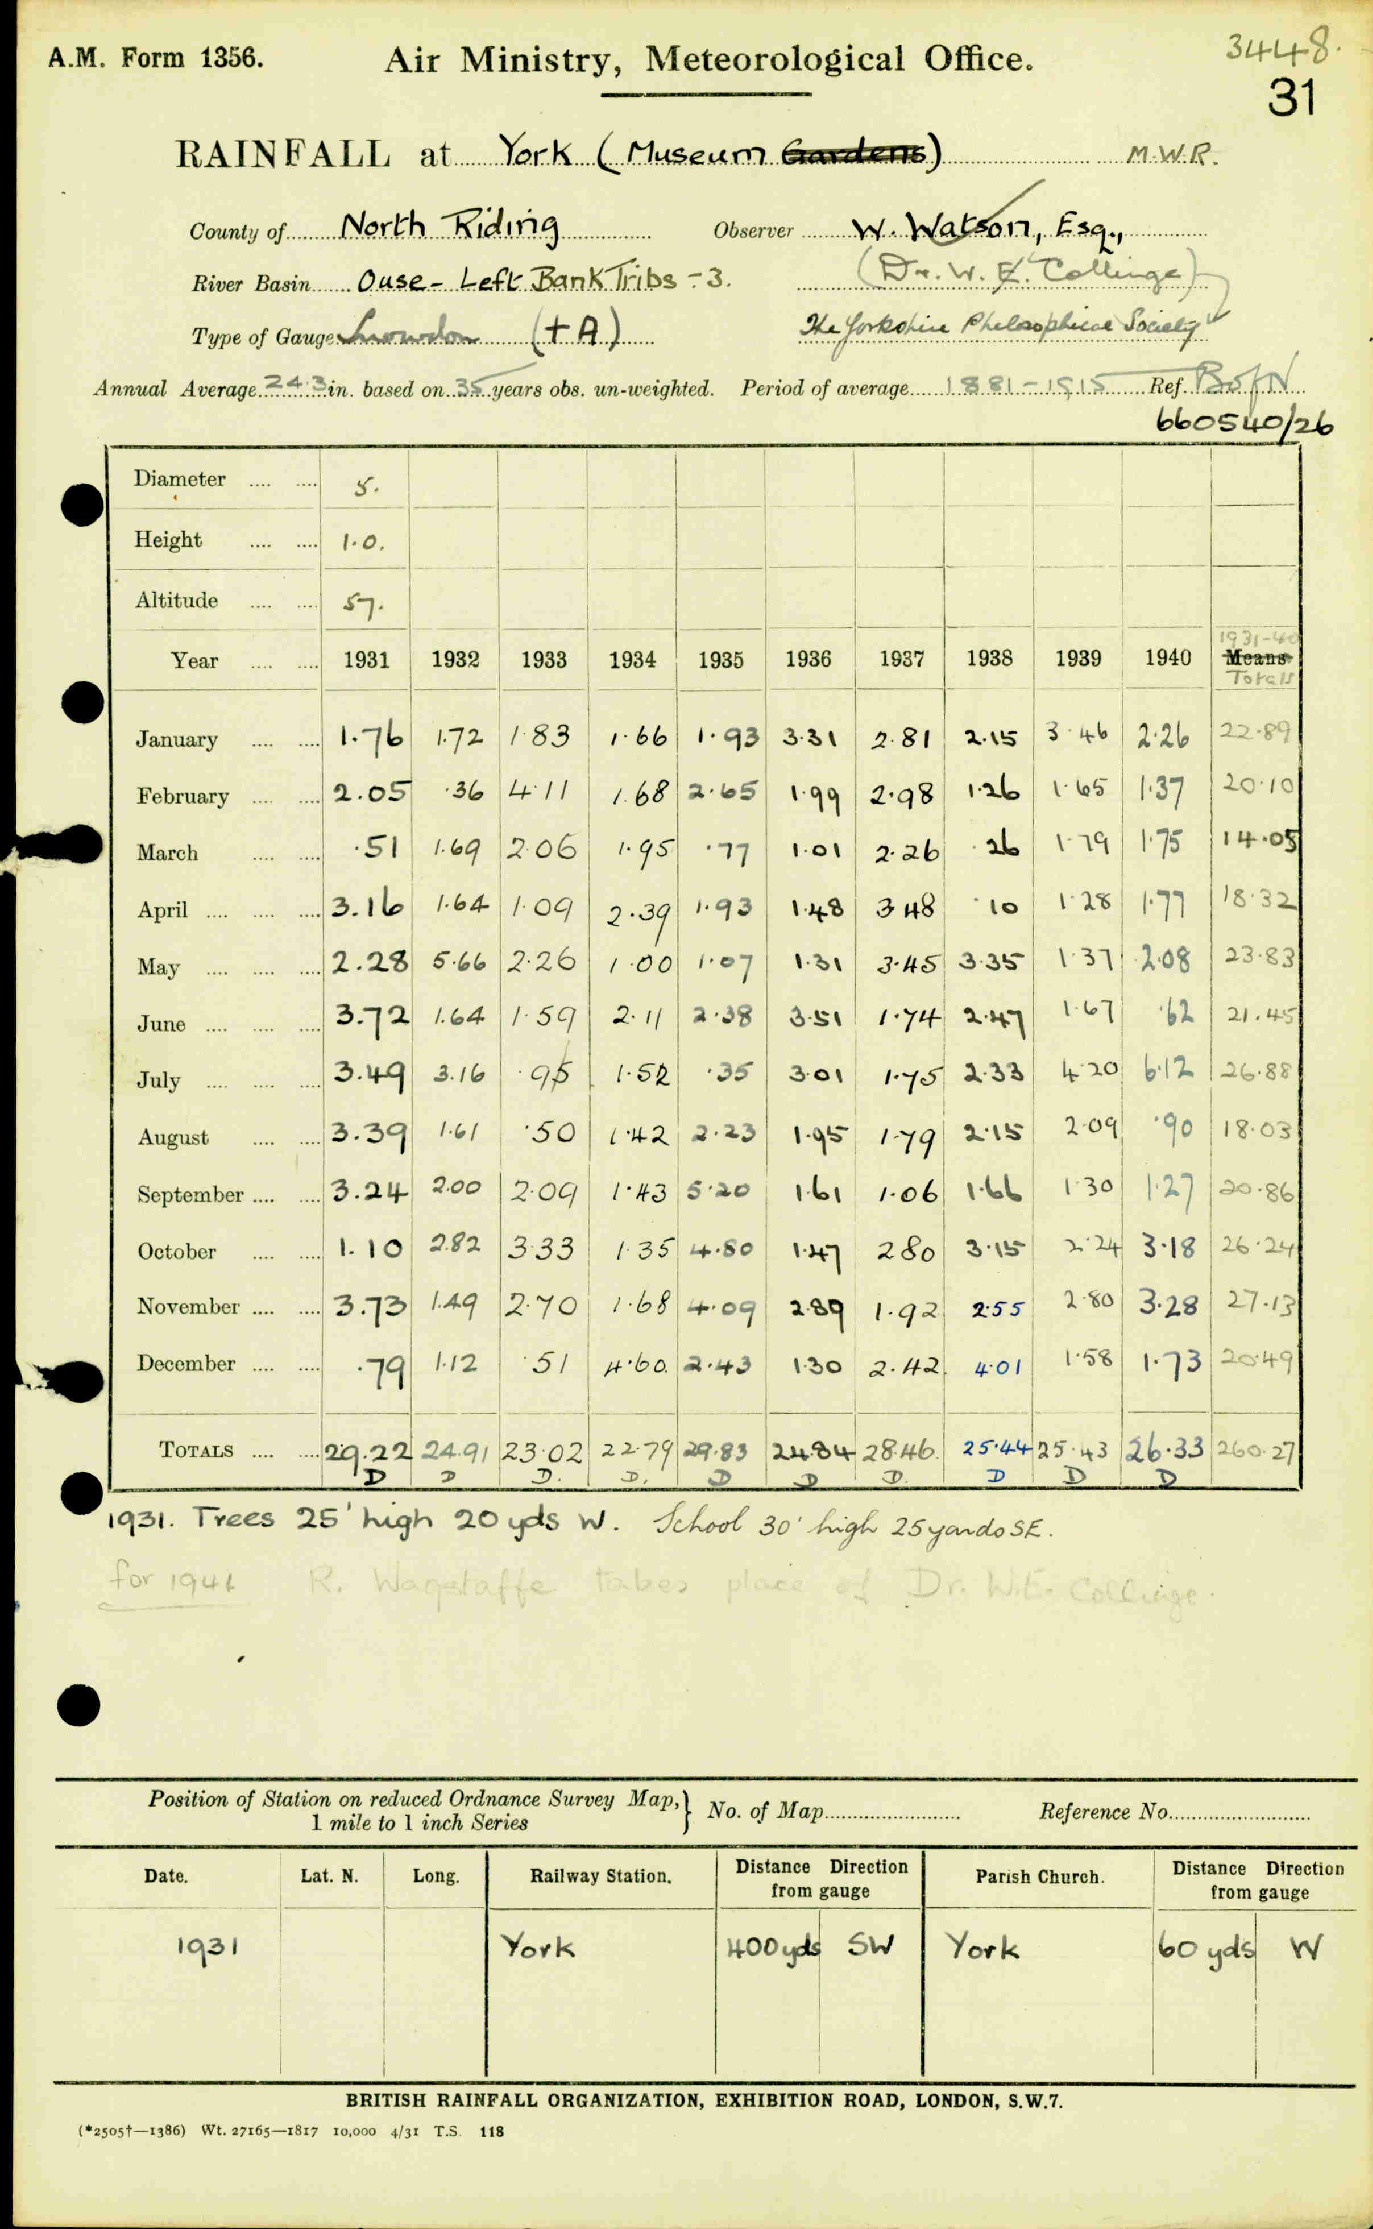 A.M. Form 1356. Air Ministry, Meteorological Office. 3448.
31
RAINFALL at York (Museum Gardens) M.W.R.
County of North Riding Observer W. Watson, Esq.,
River Basin Ouse - Left Bank Tribs - 3. (Dr. W. E. Collinge)
Type of Gauge Snowdon (+A) The Yorkshire Philosophical Society
Annual Average 24.3 in. based on 35 years obs. un-weighted. Period of average 1881-1915 Ref.
660540/26
Diameter 5.
Height 1.0.
Altitude 57.
1931-40
Year 1931 1932 1933 1934 1935 1936 1937 1938 1939 1940 Means
Totals
January 1.76 1.72 1.83 1.66 1.93 3.31 2.81 2.15 3.46 2.26 22.89
February 2.05 .36 4.11 1.68 2.65 1.99 2.98 1.26 1.65 1.37 20.10
March .51 1.69 2.06 1.95 .77 1.01 2.26 .26 1.79 1.75 14.05
April 3.16 1.64 1.09 2.39 1.93 1.48 3.48 .10 1.28 1.77 18.32
May 2.28 5.66 2.26 1.00 1.07 1.31 3.45 3.35 1.37 2.08 23.83
June 3.72 1.64 1.59 2.11 2.38 3.51 1.74 2.47 1.67 .62 21.45
July 3.49 3.16 .95 1.52 .35 3.01 1.75 2.33 4.20 6.12 26.88
August 3.39 1.61 .50 1.42 2.23 1.95 1.79 2.15 2.09 .90 18.03
September 3.24 2.00 2.09 1.43 5.20 1.61 1.06 1.66 1.30 1.27 20.86
October 1.10 2.82 3.33 1.35 4.80 1.47 2.80 3.15 2.24 3.18 26.24
November 3.73 1.49 2.70 1.68 4.09 2.89 1.92 2.55 2.80 3.28 27.13
December .79 1.12 .51 4.60 2.43 1.30 2.42 4.01 1.58 1.73 20.49
TOTALS 29.22 24.91 23.02 22.79 29.83 24.84 28.46 25.44 25.43 26.33 260.27
D D D. D. D D D. D D D
1931. Trees 25' high 20 yds W. School 30' high 25 yards SE.
for 1941 R. Wagstaffe takes place of Dr. W.E. Collinge.
Position of Station on reduced Ordnance Survey Map, } No. of Map Reference No.
1 mile to 1 inch Series
Date. Lat. N. Long. Railway Station. Distance Direction from gauge Parish Church. Distance Direction from gauge
1931 York 400yds SW York 60 yds W
BRITISH RAINFALL ORGANIZATION, EXHIBITION ROAD, LONDON, S.W.7.
(*2505†—1386) Wt. 27165—1817 10,000 4/31 T.S. 118